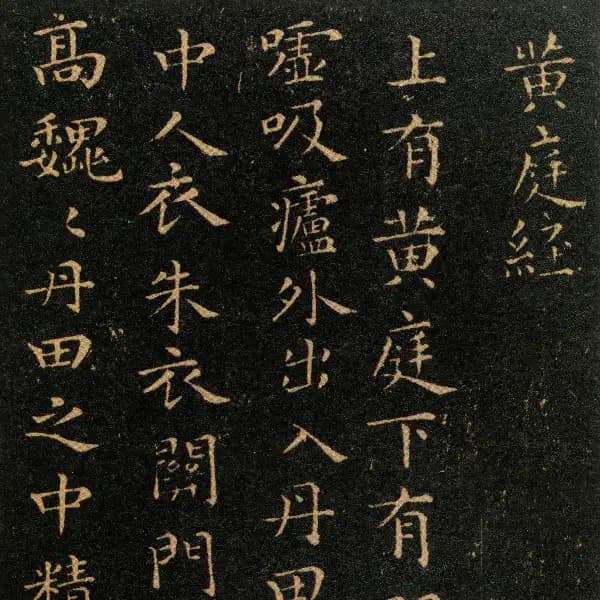 黄庭経
上有黄庭下有
嘘吸廬外出入丹田
中人衣朱衣關門
高巍〻丹田之中精